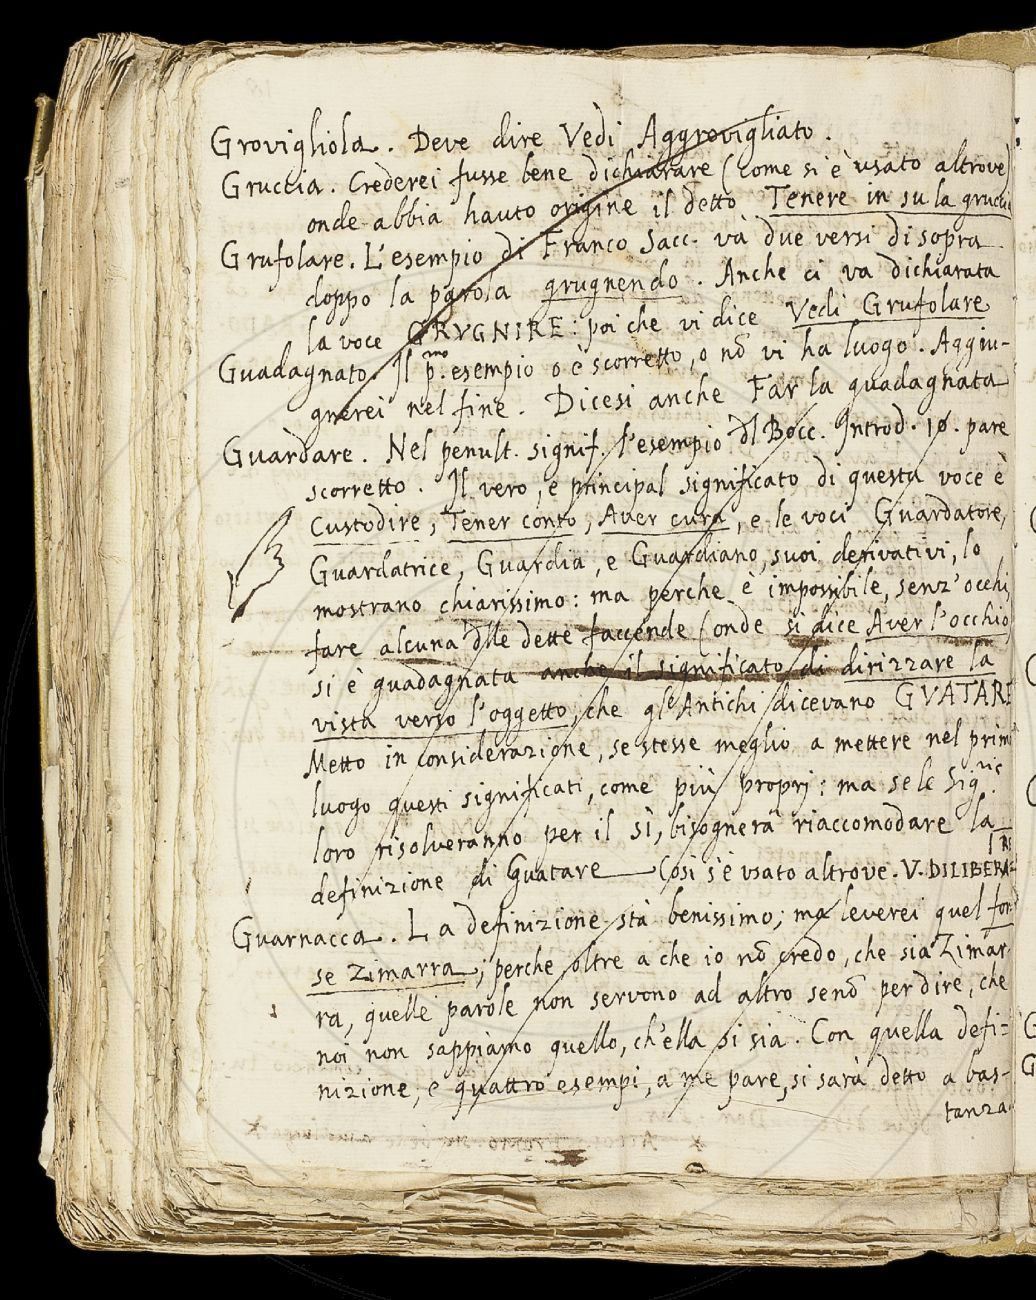 Grovigliola. Deve dire Vedi Aggrovigliato.
Gruccia. Crederei fusse bene dichiarare (come si è usato altrove)
onde abbia hauto origine il detto Tenere in su la gruccia
Grufolare. L'esempio di Franco Sacc. và due versi di sopra
doppo la parola grugnendo. Anche ci va dichiarata
la voce GRVGNIRE: poi che vi dice Vedi Grufolare
Guadagnato. Il p.mo esempio o è scorretto, o nō vi ha luogo. Aggiu-
gnerei nel fine. Dicesi anche Far la guadagnata
Guardare. Nel penult. signif. l'esempio dl Bocc. Introd. 10. pare
scorretto. Il vero, e principal significato di questa voce è
Custodire, Tener conto, Aver cura, e le voci Guardatore,
Guardatrice, Guardia, e Guardiano, suoi derivativi, lo
mostrano chiarissimo: ma perche è impossibile, senz'occhi
fare alcuna dlle dette faccende (onde si dice Aver l'occhio)
si è guadagnata anche il significato di dirizzare la
vista verso l'oggetto, che gl'Antichi dicevano GVATARE
Metto in considerazione, se stesse meglio a mettere nel primo
luogo questi significati, come più propri: ma se le Sig.rie
loro risolveranno per il sì, bisognerà riaccomodare la
definizione di Guatare Così s'è usato altrove. V. DILIBERA=
Guarnacca. La definizione stà benissimo; ma leverei quel for=
se zimarra; perche oltre a che io nō credo, che sia Zimar-
ra, quelle parole non servono ad altro senō per dire, che
noi non sappiamo quello, ch'ella si sia. Con quella defi=
nizione, e quattro esempi, a me pare, si sarà detto a bas-
tanza